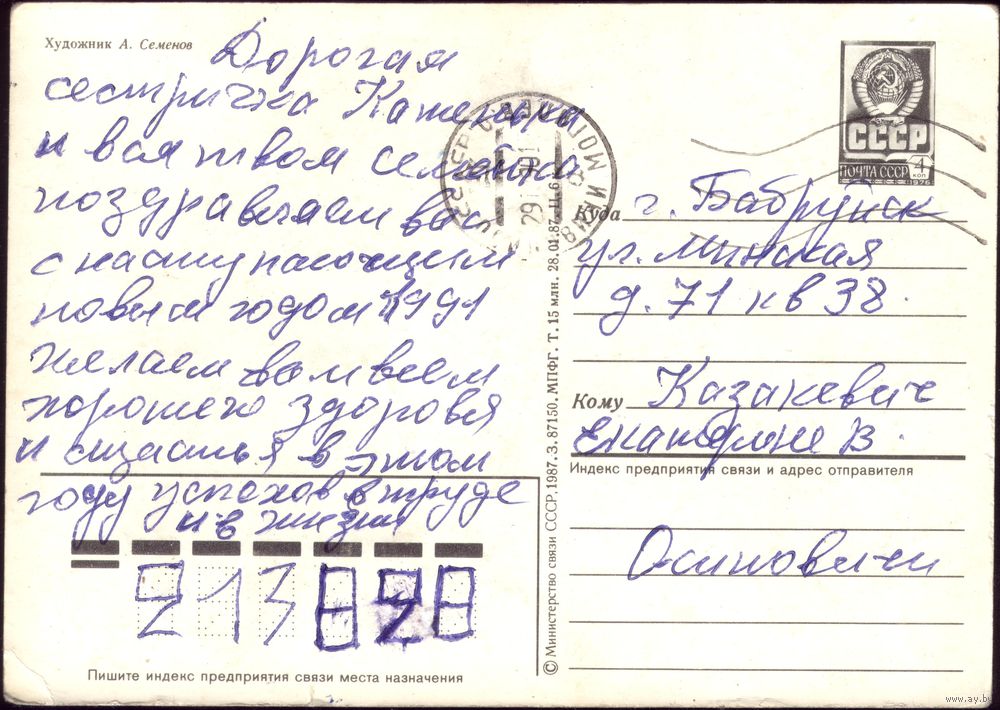 Художник А. Семенов
Дорогая
сестричка Катенька
и вся твоя семейка
поздравляем вас
с наступающим
новым годом 1991
желаем вам всем
хорошего здоровя
и щастья в этом
году успехов в труде
и в жизни
213828
Пишите индекс предприятия связи места назначения
© Министерство связи СССР, 1987. З. 87150. МПФГ. Т. 15 млн. 28.01.87. Ц. 6
СССР
ПОЧТА СССР
4 коп
1976
Куда г. Бабруйск
ул. Минская
д. 71 кв 38.
Кому Казакевич
Екатерине В.
Индекс предприятия связи и адрес отправителя
Осиповичи
www.ay.by